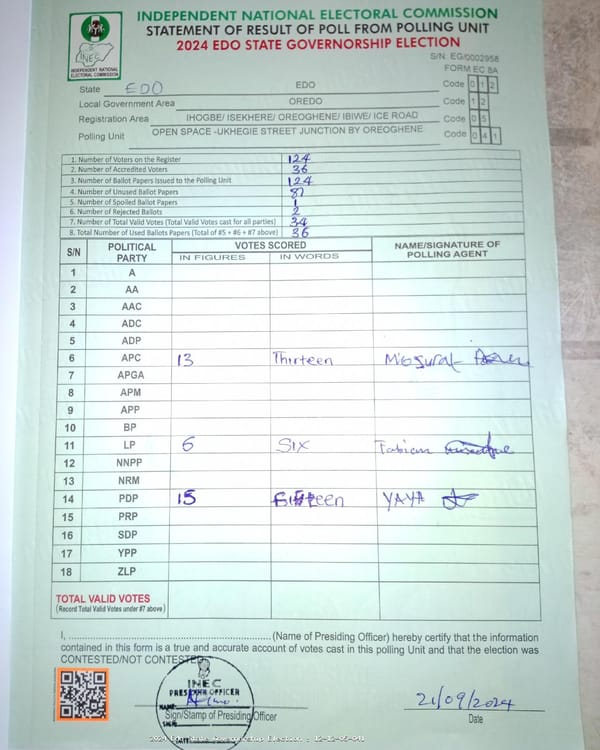 INDEPENDENT NATIONAL ELECTORAL COMMISSION
STATEMENT OF RESULT OF POLL FROM POLLING UNIT
2024 EDO STATE GOVERNORSHIP ELECTION
INEC
INDEPENDENT NATIONAL ELECTORAL COMMISSION
S/N: EG/0002958
FORM EC 8A
State EDO EDO Code 0 1 2
Local Government Area OREDO Code 1 2
Registration Area IHOGBE/ ISEKHERE/ OREOGHENE/ IBIWE/ ICE ROAD Code 0 5
Polling Unit OPEN SPACE -UKHEGIE STREET JUNCTION BY OREOGHENE Code 0 4 1
1. Number of Voters on the Register 124
2. Number of Accredited Voters 36
3. Number of Ballot Papers Issued to the Polling Unit 124
4. Number of Unused Ballot Papers 87
5. Number of Spoiled Ballot Papers 1
6. Number of Rejected Ballots 2
7. Number of Total Valid Votes (Total Valid Votes cast for all parties) 34
8. Total Number of Used Ballots Papers (Total of #5 + #6 + #7 above) 36
S/N POLITICAL PARTY VOTES SCORED NAME/SIGNATURE OF POLLING AGENT
IN FIGURES IN WORDS
1 A
2 AA
3 AAC
4 ADC
5 ADP
6 APC 13 Thirteen
7 APGA
8 APM
9 APP
10 BP
11 LP 6 SIX Fabian
12 NNPP
13 NRM
14 PDP 15 Fifteen YAYA
15 PRP
16 SDP
17 YPP
18 ZLP
TOTAL VALID VOTES
(Record Total Valid Votes under #7 above)
I, (Name of Presiding Officer) hereby certify that the information
contained in this form is a true and accurate account of votes cast in this polling Unit and that the election was
CONTESTED/NOT CONTESTED
INEC
PRESIDING OFFICER
NAME:
SIGN:
DATE:
21/09/2024
Sign/Stamp of Presiding Officer Date
2024 Edo State Governorship Election : 12-12-05-041